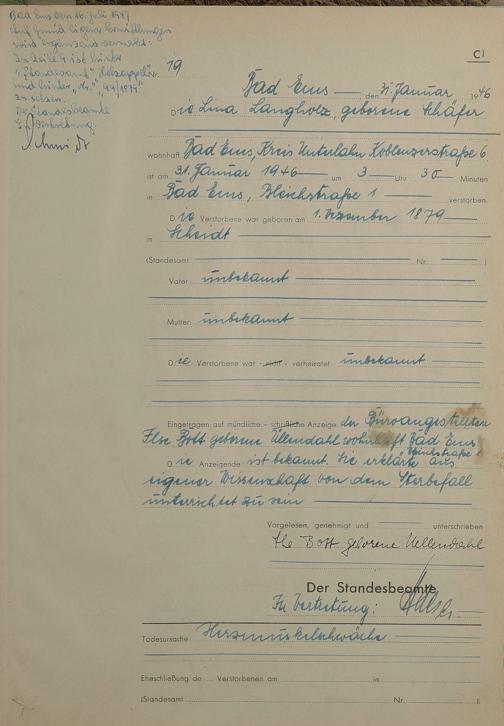 Bad Ems den 16. Juli 1947
Auf Grund eigener Ermittlungen
wird ergänzend vermerkt:
In Zeile 9 ist hinter
"Standesamt" "Holzappel"
und hinter "Nr." "99/1879"
zu setzen.
Der Standesbeamte
In Vertretung
Schmidt
C1
19
Bad Ems den 31. Januar 1946
Die Lina Langholz, geborene Schäfer
wohnhaft Bad Ems, Kreis Unterlahn Koblenzerstraße 6
ist am 31. Januar 1946 um 3 Uhr 30 Minuten
in Bad Ems, Bleichstraße 1 verstorben.
Die Verstorbene war geboren am 1. Dezember 1879
in Scheidt
(Standesamt Nr. )
Vater: unbekannt
Mutter: unbekannt
Die Verstorbene war - nicht - verheiratet unbekannt
Eingetragen auf mündliche - schriftliche Anzeige der Büroangestellten
Else Bott geborene Üllendahl wohnhaft Bad Ems
Die Anzeigende ist bekannt. Sie erklärte aus
eigener Wissenschaft von dem Sterbefall
unterrichtet zu sein
Vorgelesen, genehmigt und unterschrieben
Else Bott geborene Uellendahl
Der Standesbeamte
In Vertretung:
Todesursache: Herzmuskelschwäche
Eheschließung de Verstorbenen am in
(Standesamt Nr. ).